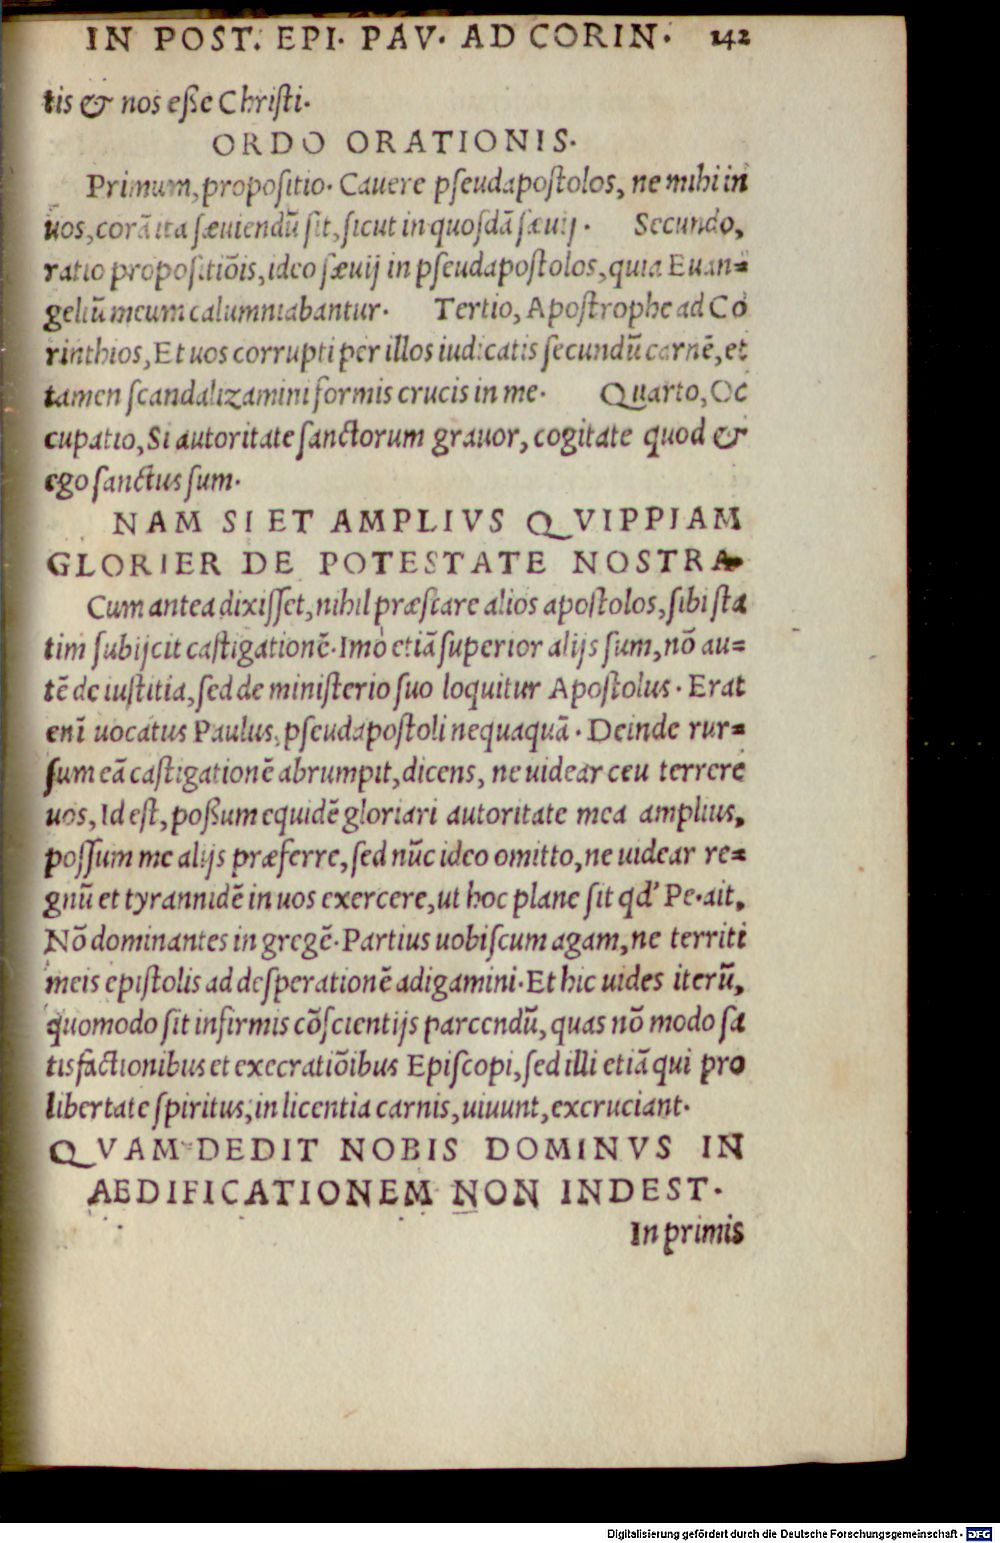 IN POST. EPI. PAV. AD CORIN. 142
tis & nos eße Chriſti.
ORDO ORATIONIS.
Primum, propoſitio. Cauere pſeudapoſtolos, ne mihi in
uos, corā ita ſæuiendū ſit, ſicut in quoſdā ſæuij. Secundo,
ratio propoſitiōis, ideo ſæuij in pſeudapoſtolos, quia Euan=
geliū meum calumniabantur. Tertio, Apoſtrophe ad Co
rinthios, Et uos corrupti per illos iudicatis ſecundū carnē, et
tamen ſcandalizamini formis crucis in me. Quarto, Oc
cupatio, Si autoritate ſanctorum grauor, cogitate quod &
ego ſanctus ſum.
NAM SI ET AMPLIVS QVIPPIAM
GLORIER DE POTESTATE NOSTRA
Cum antea dixiſſet, nihil præſtare alios apoſtolos, ſibi ſta
tim ſubijcit caſtigationē. Imò etiā ſuperior alijs ſum, nō au=
tē de iuſtitia, ſed de miniſterio ſuo loquitur Apoſtolus. Erat
enī uocatus Paulus, pſeudapoſtoli nequaquā. Deinde rur=
ſum eā caſtigationē abrumpit, dicens, ne uidear ceu terrere
uos, Id eſt, poßum equidē gloriari autoritate mea amplius,
poſſum me alijs præferre, ſed nūc ideo omitto, ne uidear re=
gnū et tyrannidē in uos exercere, ut hoc plane ſit qd' Pe. ait,
Nō dominantes in gregē. Partius uobiſcum agam, ne territi
meis epiſtolis ad deſperationē adigamini. Et hic uides iterū,
quomodo ſit infirmis cōſcientijs parcendū, quas nō modo ſa
tisfactionibus et execratiōibus Epiſcopi, ſed illi etiā qui pro
libertate ſpiritus, in licentia carnis, uiuunt, excruciant.
QVAM DEDIT NOBIS DOMINVS IN
AEDIFICATIONEM NON INDEST.
In primis
Digitalisierung gefördert durch die Deutsche Forschungsgemeinschaft - DFG